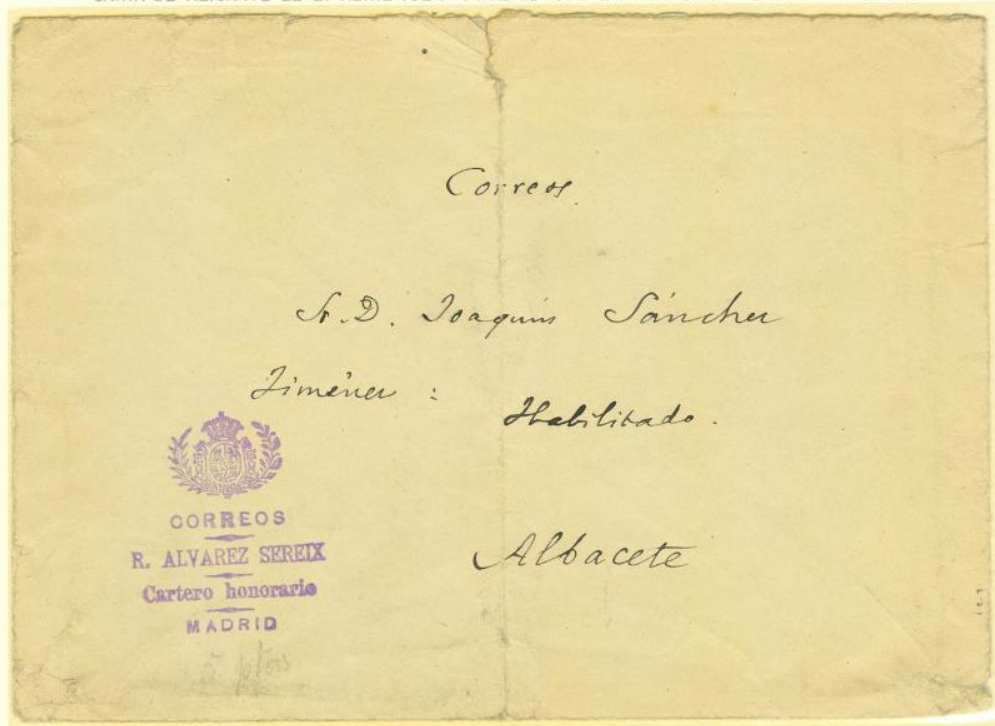 Correos.
Sr. D. Joaquín Sánchez
Jiménez :
Habilitado.
Albacete
CORREOS
R. ALVAREZ SEREIX
Cartero honorario
MADRID